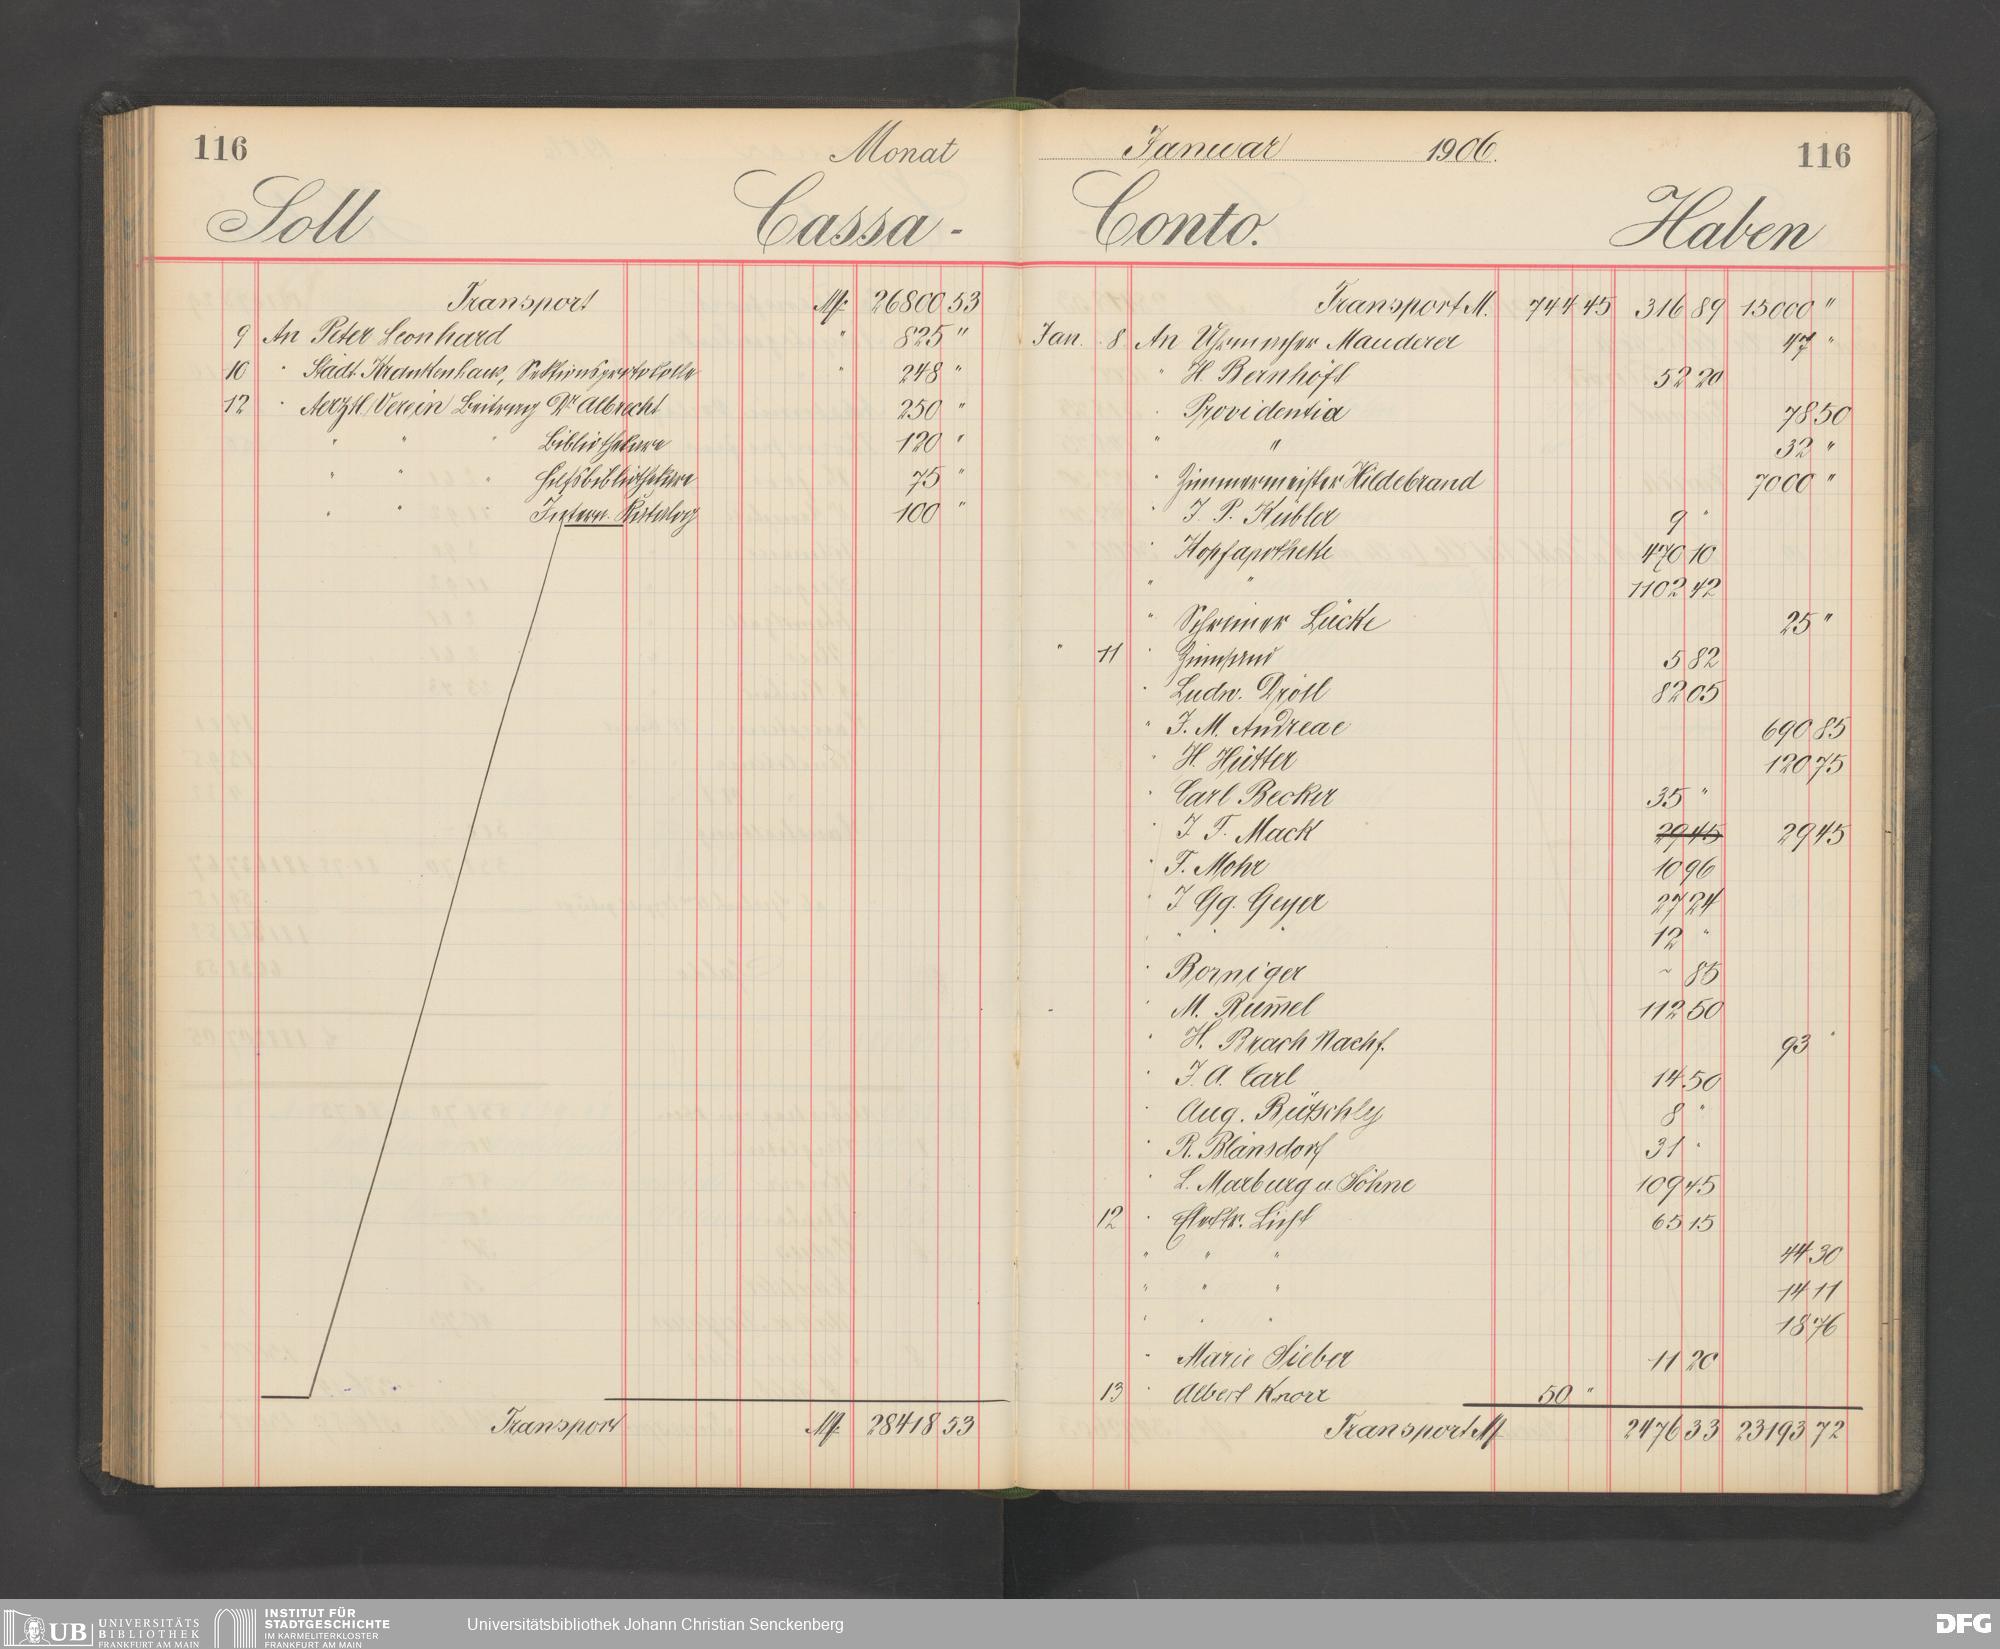 116
Monat
Soll
Cassa-
Transport M 26800 53
9 An Peter Leonhard " 825 "
10 " Städt. Krankenhaus, Sektionsprotokolle " 248 "
12 " Aerztl. Verein Beitrag Dr. Albrecht 250 "
" " " Bibliothekare 120 "
" " " Hilfsbibliothekare 75 "
" " " Intern. Katalog 100 "
Transport M 28418 53
Januar 1906. 116
Conto. Haben
Transport M. 744 45 316 89 15000 "
Jan. 8 An Uhrmacher Mauderer 47 "
" H. Bernhöft 52 20
" Providentia 78 50
" " 32 "
" Zimmermeister Hildebrand 7000 "
" J. P. Kübler 9 "
" Kopfapotheke 470 10
" " 1102 42
" Schreiner Lücke 25 "
" 11 " 5 82
" Ludw. Dröll 82 05
" J. M. Andreae 690 85
" H. Hütter 120 75
" Carl Becker 35 "
" J. F. Mack 29 45 29 45
" F. Mohr 10 96
" J Gg. Geyer 27 24
" " " 12 "
" Borniger ~ 85
" M. Rum̅el 112 50
" H. Brach Nachf. 93 "
" J. A. Carl 14 50
" Aug. Bütschly 8 "
" R. Blänsdorf 31 "
" L. Marburg u. Söhne 109 45
12 " Elektr. Licht 65 15
" " " 44 30
" " " 14 11
" " " 18 76
" Marie Sieber 11 20
13 " Albert Knorr 50 "
Transport M 2476 33 23193 72
UB UNIVERSITÄTS
BIBLIOTHEK
FRANKFURT AM MAIN
INSTITUT FÜR
STADTGESCHICHTE
IM KARMELITERKLOSTER
FRANKFURT AM MAIN
Universitätsbibliothek Johann Christian Senckenberg
DFG